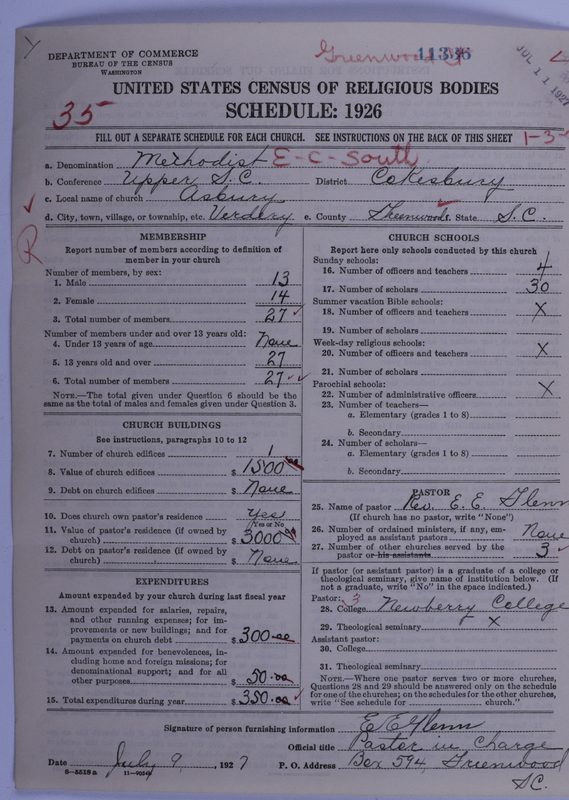 Greenwood
11336
JUL 11 1927
DEPARTMENT OF COMMERCE
BUREAU OF THE CENSUS
WASHINGTON
UNITED STATES CENSUS OF RELIGIOUS BODIES
SCHEDULE: 1926
35
FILL OUT A SEPARATE SCHEDULE FOR EACH CHURCH. SEE INSTRUCTIONS ON THE BACK OF THIS SHEET
1-3-
a. Denomination Methodist E-C-South
b. Conference Upper S.C. District Cokesbury
c. Local name of church Asbury
d. City, town, village, or township, etc. Verdery e. County Greenwood State S.C.
R
MEMBERSHIP
Report number of members according to definition of
member in your church
Number of members, by sex:
1. Male 13
2. Female 14
3. Total number of members 27
Number of members under and over 13 years old:
4. Under 13 years of age None
5. 13 years old and over 27
6. Total number of members 27
NOTE.—The total given under Question 6 should be the
same as the total of males and females given under Question 3.
CHURCH BUILDINGS
See instructions, paragraphs 10 to 12
7. Number of church edifices 1
8. Value of church edifices $ 1500
9. Debt on church edifices $ None
10. Does church own pastor's residence Yes
(Yes or No)
11. Value of pastor's residence (if owned by
church) $ 3000
12. Debt on pastor's residence (if owned by
church) $ None
EXPENDITURES
Amount expended by your church during last fiscal year
13. Amount expended for salaries, repairs,
and other running expenses; for im-
provements or new buildings; and for
payments on church debt $ 300.00
14. Amount expended for benevolences, in-
cluding home and foreign missions; for
denominational support; and for all
other purposes $ 50.00
15. Total expenditures during year $ 350.00
CHURCH SCHOOLS
Report here only schools conducted by this church
Sunday schools:
16. Number of officers and teachers 4
17. Number of scholars 30
Summer vacation Bible schools:
18. Number of officers and teachers X
19. Number of scholars
Week-day religious schools:
20. Number of officers and teachers X
21. Number of scholars
Parochial schools:
22. Number of administrative officers X
23. Number of teachers—
a. Elementary (grades 1 to 8)
b. Secondary
24. Number of scholars—
a. Elementary (grades 1 to 8)
b. Secondary
PASTOR
25. Name of pastor Rev. E. E. Glenn
(If church has no pastor, write "None")
26. Number of ordained ministers, if any, em-
ployed as assistant pastors None
27. Number of other churches served by the
pastor or his assistants 3
If pastor (or assistant pastor) is a graduate of a college or
theological seminary, give name of institution below. (If
not a graduate, write "No" in the space indicated.)
Pastor: 3
28. College Newberry College
29. Theological seminary X
Assistant pastor:
30. College
31. Theological seminary
NOTE.—Where one pastor serves two or more churches,
Questions 28 and 29 should be answered only on the schedule
for one of the churches; on the schedules for the other churches,
write "See schedule for church."
Signature of person furnishing information E E Glenn
Official title Pastor in Charge
Date July 9, 1927 P. O. Address Box 594, Greenwood
S.C.
8-5518 a